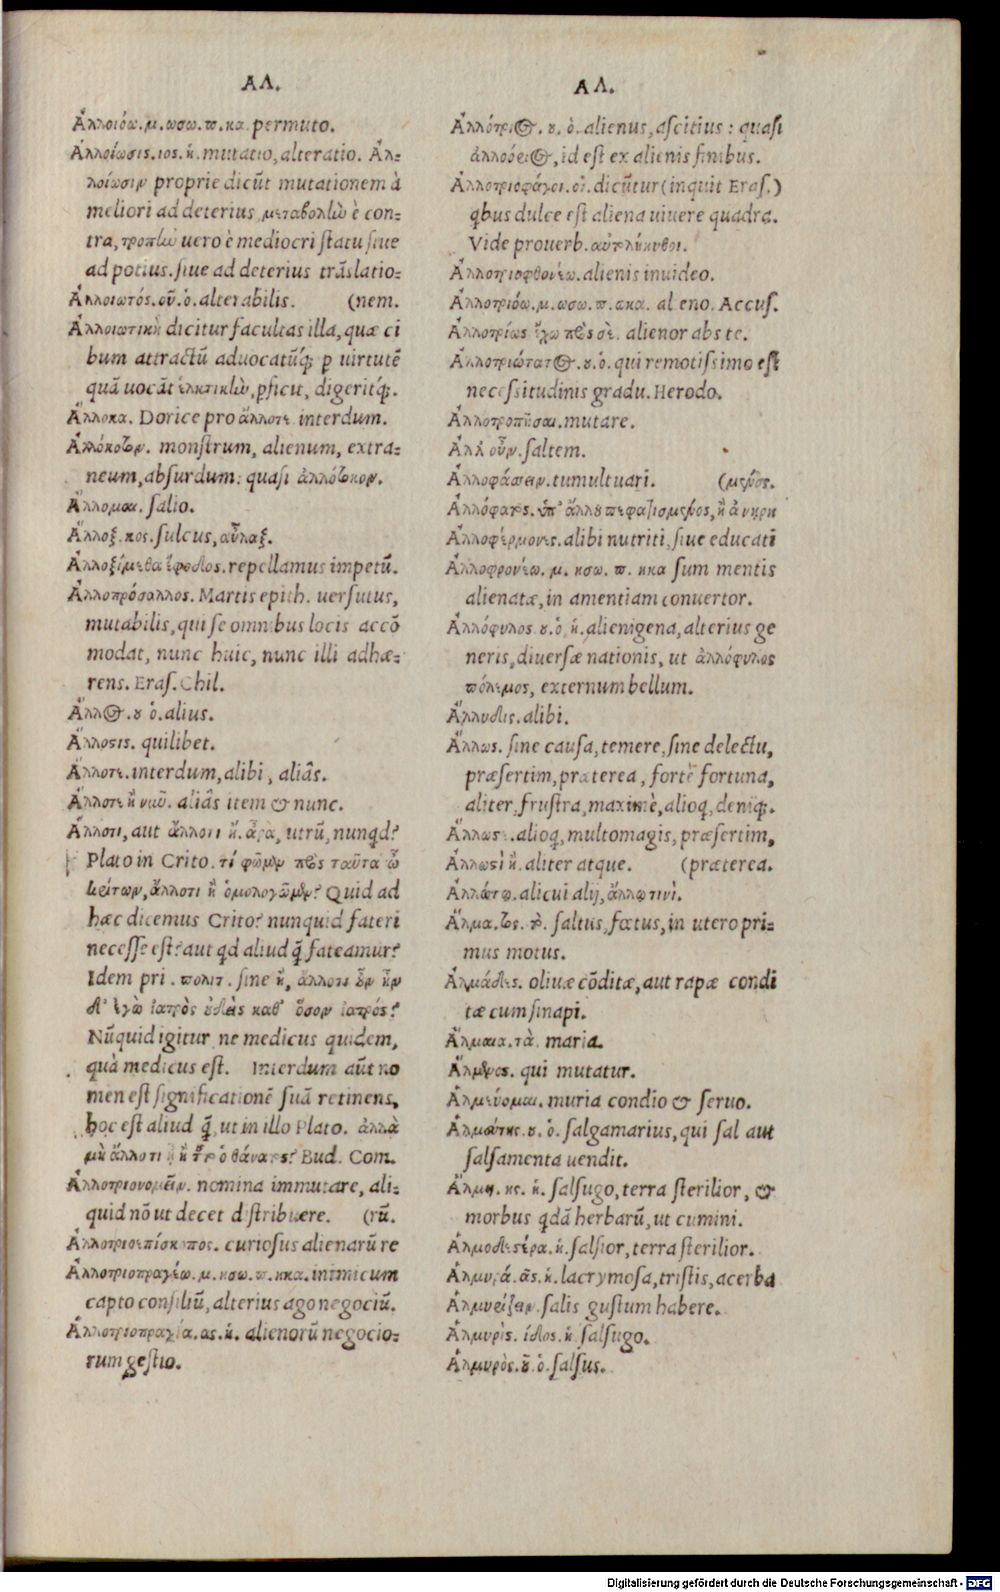 ΑΛ.
Ἀλλοιόω.μ.ωσω.π.κα permuto.
Ἀλλοίωσις.ιος.ἡ.mutatio, alteratio. Ἀλ-
λοίωσιν proprie dicūt mutationem à
meliori ad deterius, μεταβολὴν è con-
tra, τροπὴν uero è mediocri statu siue
ad potius.siue ad deterius trāslatio-
Ἀλλοιωτός.οῦ.ὁ.alterabilis. (nem.
Ἀλλοιωτικὴ dicitur facultas illa, quæ ci
bum attractū aduocatūq́; p uirtutē
quā uocāt ἑλκτικὴν, ꝑficit, digeritq́;.
Ἄλλοκα. Dorice pro ἄλλοτε interdum.
Ἀλλόκοτον. monstrum, alienum, extra-
neum, absurdum: quasi ἀλλότοκον.
Ἅλλομαι. salio.
Ἄλλοξ.κος.sulcus, αὖλαξ.
Ἀλλοξίμεθα ἔφοδος.repellamus impetū.
Ἀλλοπρόσαλλος. Martis epith. uersutus,
mutabilis, qui se omnibus locis accō
modat, nunc huic, nunc illi adhæ-
rens. Eras. Chil.
Ἄλλος.ου ὁ.alius.
Ἄλλοστις. quilibet.
Ἄλλοτε.interdum, alibi, aliâs.
Ἄλλοτε ἢ νῦν. aliâs item & nunc.
Ἄλλοτι, aut ἄλλοτι ἤ. ἆρα, utrū, nunqd?
Plato in Crito. τί φῶμεν πρὸς ταῦτα ὦ
κρίτων, ἄλλοτι ἢ ὁμολογῶμεν? Quid ad
hæc dicemus Crito? nunquid fateri
necesse est? aut qd aliud q̄ fateamur?
Idem pri. πολιτ. sine ἢ, ἄλλοτι οὖν ἦν
δ' ἐγὼ ἰατρὸς οὐδεὶς καθ' ὅσον ἰατρός?
Nūquid igitur ne medicus quidem,
quà medicus est. Interdum aūt no
men est significationē suā retinens,
hoc est aliud q̄, ut in illo Plato. ἀλλὰ
μὴ ἄλλοτι ἢ ἢ τῆς ὁ θάνατος? Bud. Com.
Ἀλλοτριονομεῖν. nomina immutare, ali-
quid nō ut decet distribuere. (rū.
Ἀλλοτριοεπίσκοπος. curiosus alienarū re
Ἀλλοτριοπραγέω.μ.ησω.π.ηκα.inimicum
capto consiliū, alterius ago negociū.
Ἀλλοτριοπραγία.ας.ἡ. alienorū negocio-
rum gestio.
ΑΛ.
Ἀλλότριος.ου.ὁ.alienus, ascitius: quasi
ἀλλοόριος, id est ex alienis finibus.
Ἀλλοτριοφάγοι.οἱ.dicūtur (inquit Eras.)
qbus dulce est aliena uiuere quadra.
Vide prouerb. αὐτολήκυθοι.
Ἀλλοτριοφθονέω.alienis inuideo.
Ἀλλοτριόω.μ.ωσω.π.ωκα. alieno. Accus.
Ἀλλοτρίως ἔχω πρὸς σὲ. alienor abs te.
Ἀλλοτριώτατος.ου.ὁ.qui remotissimo est
necessitudinis gradu. Herodo.
Ἀλλοτροπῆσαι.mutare.
Ἀλλ' οὖν.saltem.
Ἀλλοφάσσειν.tumultuari. (μένος.
Ἀλλόφατος.ὑπ' ἄλλου πεφατισμένος, ἢ ἀνῃρη
Ἀλλοφέρμονες.alibi nutriti, siue educati
Ἀλλοφρονέω.μ.ησω.π.ηκα sum mentis
alienatæ, in amentiam conuertor.
Ἀλλόφυλος.ου.ὁ ἡ.alienigena, alterius ge
neris, diuersæ nationis, ut ἀλλόφυλος
πόλεμος, externum bellum.
Ἄλλυδις.alibi.
Ἄλλως. sine causa, temere, sine delectu,
præsertim, præterea, fortè fortuna,
aliter, frustra, maximè, alioq, deniq;.
Ἄλλωστε.alioq, multo magis, præsertim,
Ἄλλωστὶ ἢ.aliter atque. (præterea.
Ἄλλῳτῳ.alicui alij, ἄλλῳ τινὶ.
Ἅλμα.τος.τὸ. saltus, fœtus, in utero pri-
mus motus.
Ἁλμάδες. oliuæ cōditæ, aut rapæ condi
tæ cum sinapi.
Ἅλμαια.τὰ. maria.
Ἄλμενος. qui mutatur.
Ἁλμεύομαι. muria condio & seruo.
Ἁλμευτης.ου.ὁ.salgamarius, qui sal aut
salsamenta uendit.
Ἅλμη.ης.ἡ.salsugo, terra sterilior, &
morbus qdā herbarū, ut cumini.
Ἁλμοδεστέρα.ἡ.salsior, terra sterilior.
Ἁλμυρά.ᾶς.ἡ.lacrymosa, tristis, acerba
Ἁλμυρίζειν.salis gustum habere.
Ἁλμυρὶς.ίδος.ἡ.salsugo.
Ἁλμυρὸς.οῦ.ὁ.salsus.
Digitalisierung gefördert durch die Deutsche Forschungsgemeinschaft - DFG